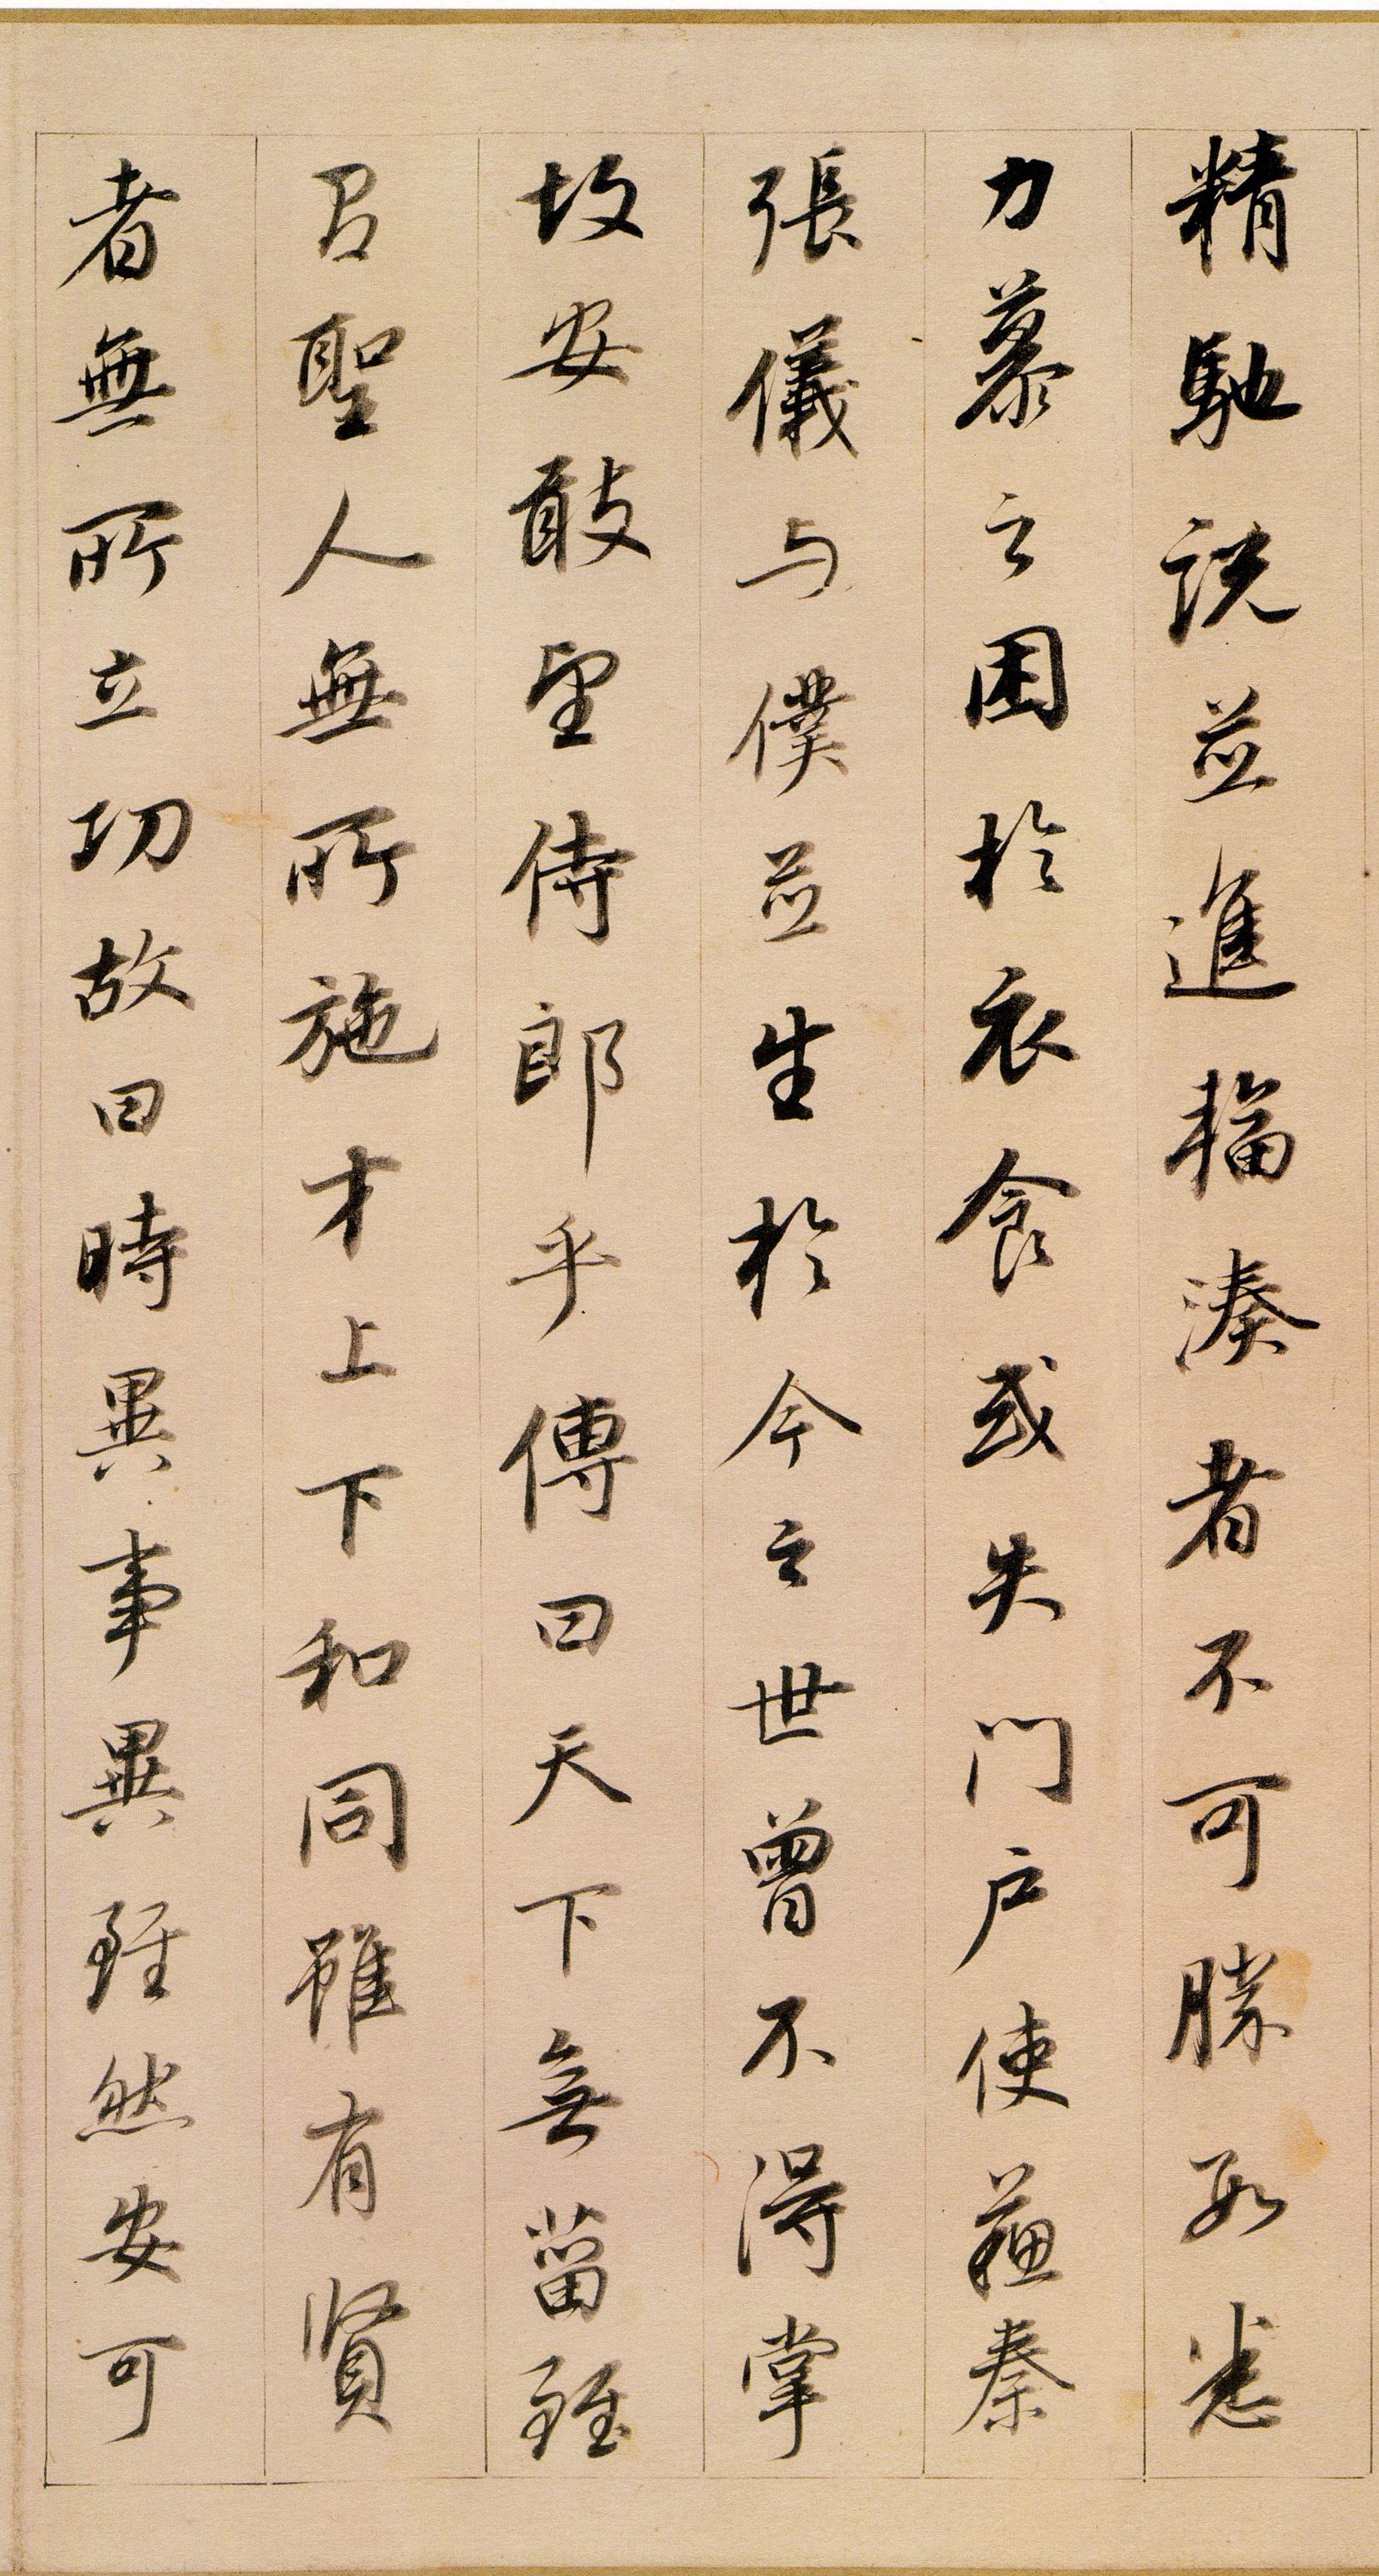 精馳説並進輻湊者不可勝數悉
力慕之困於衣食或失門户使蘇秦
張儀与僕並生於今之世曾不得掌
故安敢望侍郎乎傳曰天下無菑雖
聖人無所施才上下和同雖有賢
者無所立功故曰時異事異雖然安可